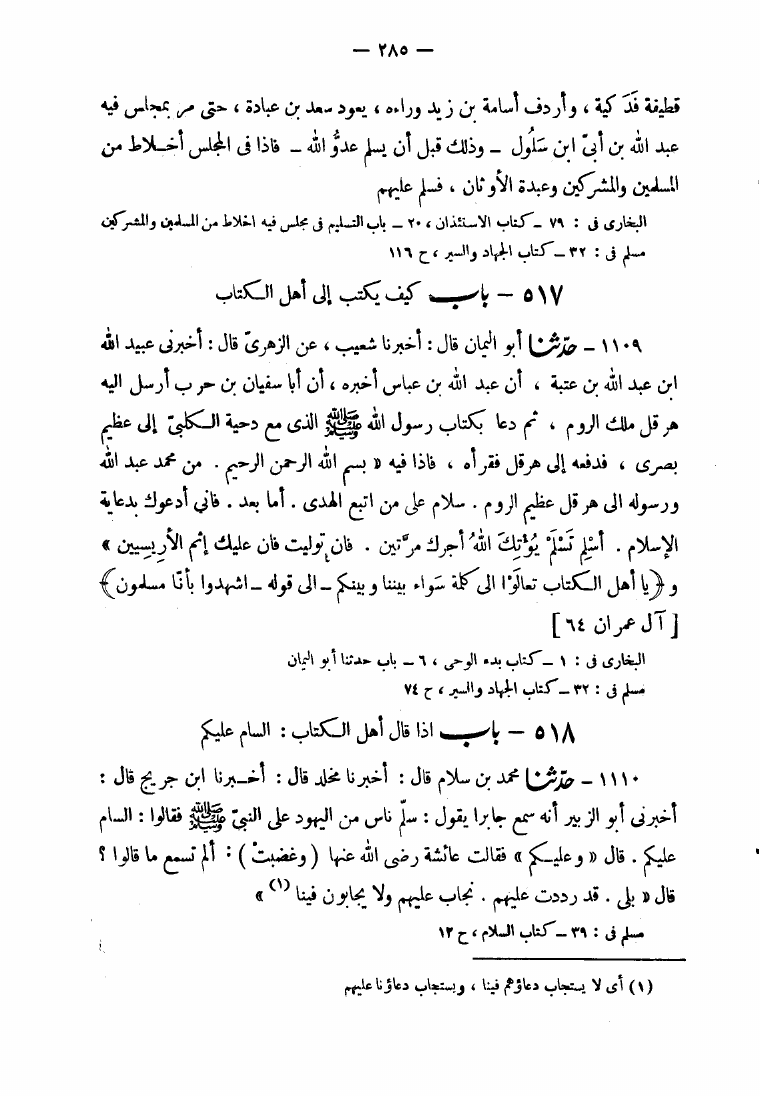 — ٢٨٥ —
قطيفة فَدَكية ، وأردف أسامة بن زيد وراءه ، يعود سعد بن عبادة ، حتى مر بمجلس فيه
عبد الله بن أبيّ ابن سَلُول – وذلك قبل أن يسلم عدوُّ الله – فاذا فى المجلس أخـلاط من
المسلمين والمشركين وعبدة الأوثان ، فسلم عليهم
البخارى فى : ٧٩ – كتاب الاستئذان ، ٢٠ – باب التسليم فى مجلس فيه اخلاط من المسلمين والمشركين
مسلم فى : ٣٢ – كتاب الجهاد والسير ، ح ١١٦
٥١٧ – باب كيف يكتب إلى أهل الكتاب
١١٠٩ – حدّثنا أبو اليمان قال : أخبرنا شعيب ، عن الزهرىّ قال : أخبرنى عبيد الله
ابن عبد الله بن عتبة ، أن عبد الله بن عباس أخبره ، أن أبا سفيان بن حرب أرسل اليه
هرقل ملك الروم ، ثم دعا بكتاب رسول الله ﷺ الذى مع دحية الكلبىّ إلى عظيم
بصرى ، فدفعه إلى هرقل فقرأه ، فاذا فيه « بسم الله الرحمن الرحيم . من محمد عبد الله
ورسوله الى هرقل عظيم الروم . سلام على من اتبع الهدى . أما بعد . فانى أدعوك بدعاية
الإسلام . أسْلِم تَسْلَمْ يُؤْتِكَ اللهُ أجرك مرَّتين . فان توليت فان عليك إثم الأرِيسِيين »
و ﴿يا أهل الكتاب تعالَوْا الى كلمة سَواء بيننا وبينكم – الى قوله – اشهدوا بأنّا مسلمون﴾
[ آل عمران ٦٤ ]
البخارى فى : ١ – كتاب بدء الوحى ، ٦ – باب حدثنا أبو اليمان
مسلم فى : ٣٢ – كتاب الجهاد والسير ، ح ٧٤
٥١٨ – باب اذا قال أهل الكتاب : السام عليكم
١١١٠ – حدّثنا محمد بن سلام قال : أخبرنا مخلد قال : أخـبرنا ابن جريج قال :
أخبرنى أبو الزبير أنه سمع جابرا يقول : سلّم ناس من اليهود على النبىّ ﷺ فقالوا : السام
عليكم . قال « وعليـكم » فقالت عائشة رضى الله عنها ( وغضبتْ ) : ألم تسمع ما قالوا ؟
قال « بلى . قد رددت عليهم . نجاب عليهم ولا يجابون فينا (١) »
مسلم فى : ٣٩ – كتاب السلام ، ح ١٢
(١) أى لا يستجاب دعاؤهم فينا ، ويستجاب دعاؤنا عليهم